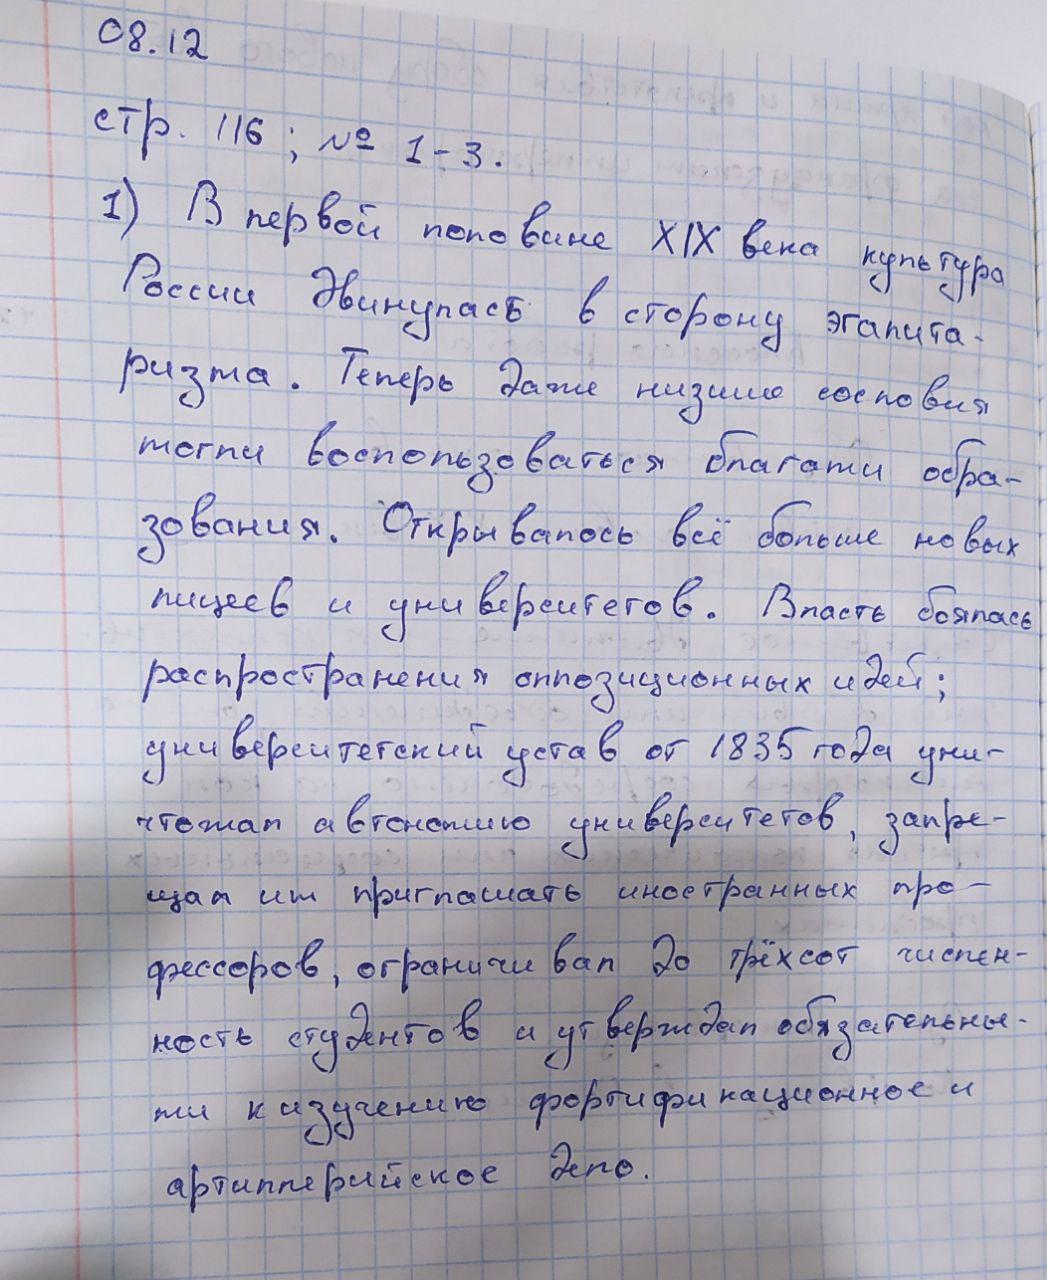 08.12
стр. 116; № 1-3.
1) В первой половине XIX века культура
России двинулась в сторону эгалита-
ризма. Теперь даже низшие сословия
могли воспользоваться благами обра-
зования. Открывалось всё больше новых
лицеев и университетов. Власть боялась
распространения оппозиционных идей;
университетский устав от 1835 года уни-
чтожал автономию университетов, запре-
щал им приглашать иностранных про-
фессоров, ограничивал до трёхсот числен-
ность студентов и утверждал обязательны-
ми к изучению фортификационное и
артиллерийское дело.